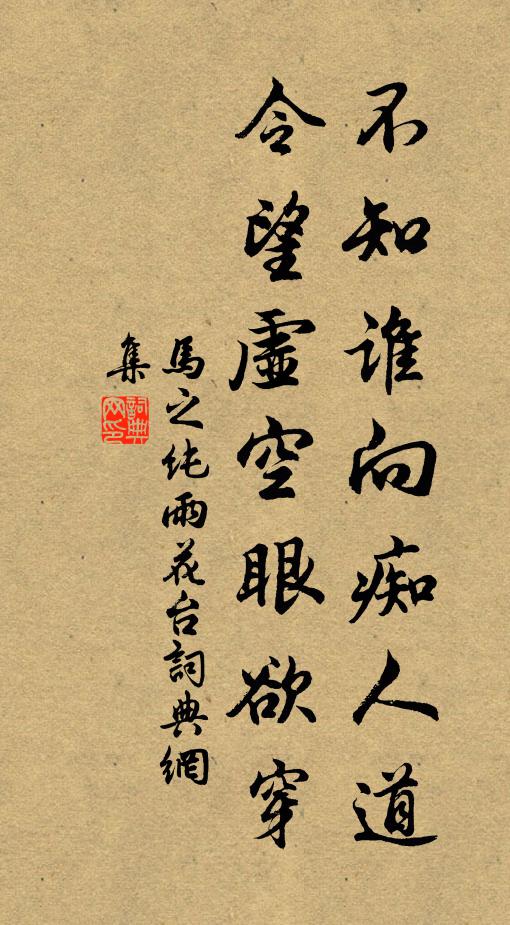 不知谁向痴人道
令望虚空眼欲穿
馬之纯雨花台詞典網
集
詞典
网印